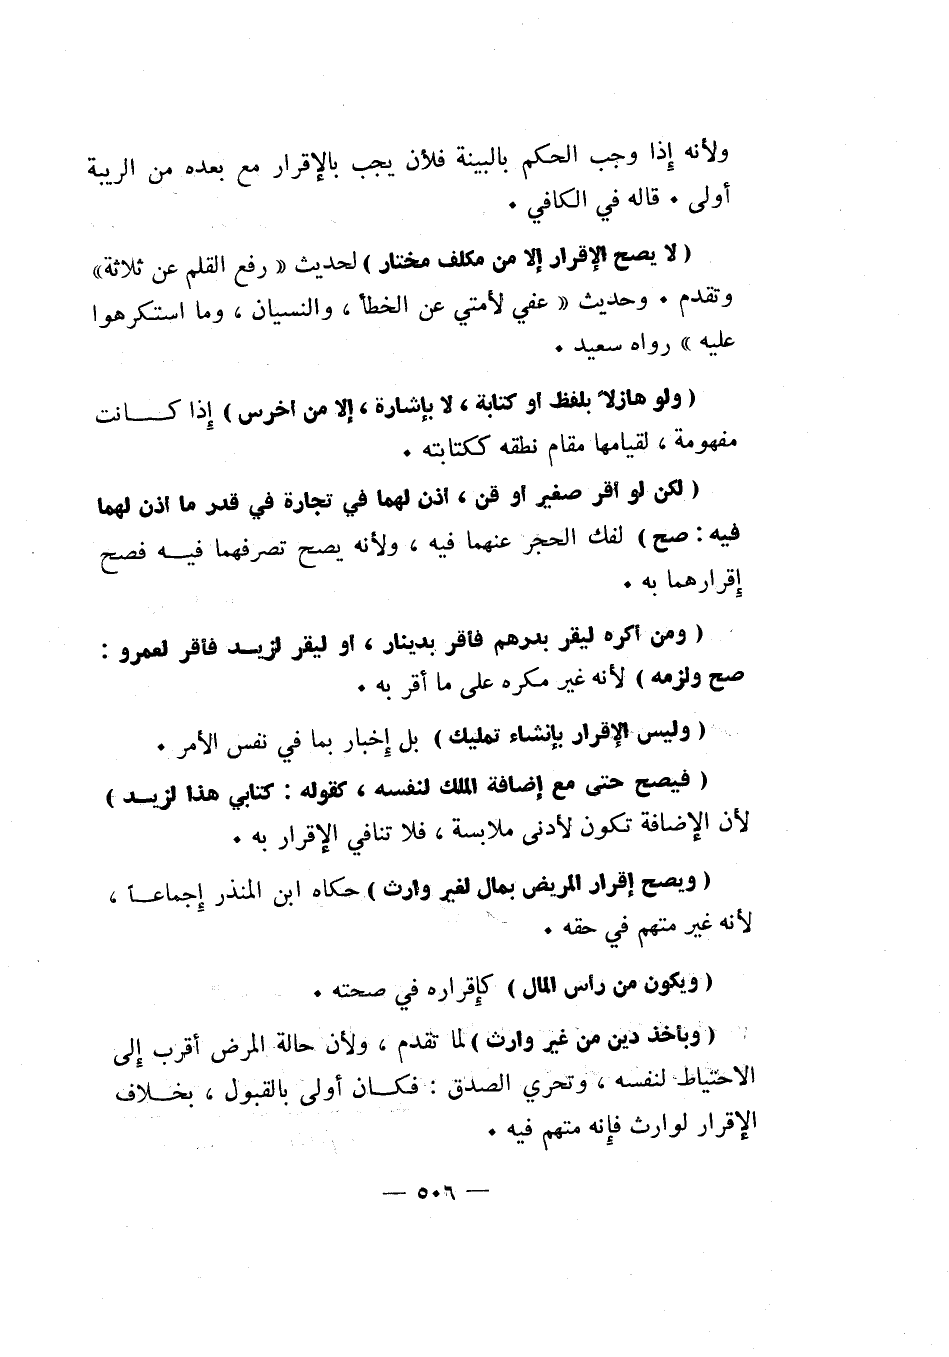 ولأنه إذا وجب الحكم بالبينة فلأن يجب بالإقرار مع بعده من الريبة
أولى . قاله في الكافي .
( لا يصح الإقرار إلا من مكلف مختار ) لحديث « رفع القلم عن ثلاثة »
وتقدم . وحديث « عفي لأمتي عن الخطأ ، والنسيان ، وما استكرهوا
عليه » رواه سعيد .
( ولو هازلاً بلفظ او كتابة ، لا بإشارة ، إلا من اخرس ) إذا كانت
مفهومة ، لقيامها مقام نطقه ككتابته .
( لكن لو أقر صغير او قن ، اذن لهما في تجارة في قدر ما اذن لهما
فيه : صح ) لفك الحجر عنهما فيه ، ولأنه يصح تصرفهما فيه فصح
إقرارهما به .
( ومن أكره ليقر بدرهم فأقر بدينار ، او ليقر لزيد فأقر لعمرو :
صح ولزمه ) لأنه غير مكره على ما أقر به .
( وليس الإقرار بإنشاء تمليك ) بل إخبار بما في نفس الأمر .
( فيصح حتى مع إضافة الملك لنفسه ، كقوله : كتابي هذا لزيد )
لأن الإضافة تكون لأدنى ملابسة ، فلا تنافي الإقرار به .
( ويصح إقرار المريض بمال لغير وارث ) حكاه ابن المنذر إجماعاً ،
لأنه غير متهم في حقه .
( ويكون من رأس المال ) كإقراره في صحته .
( وبأخذ دين من غير وارث ) لما تقدم ، ولأن حالة المرض أقرب إلى
الاحتياط لنفسه ، وتحري الصدق : فكان أولى بالقبول ، بخلاف
الإقرار لوارث فإنه متهم فيه .
— ٥٠٦ —